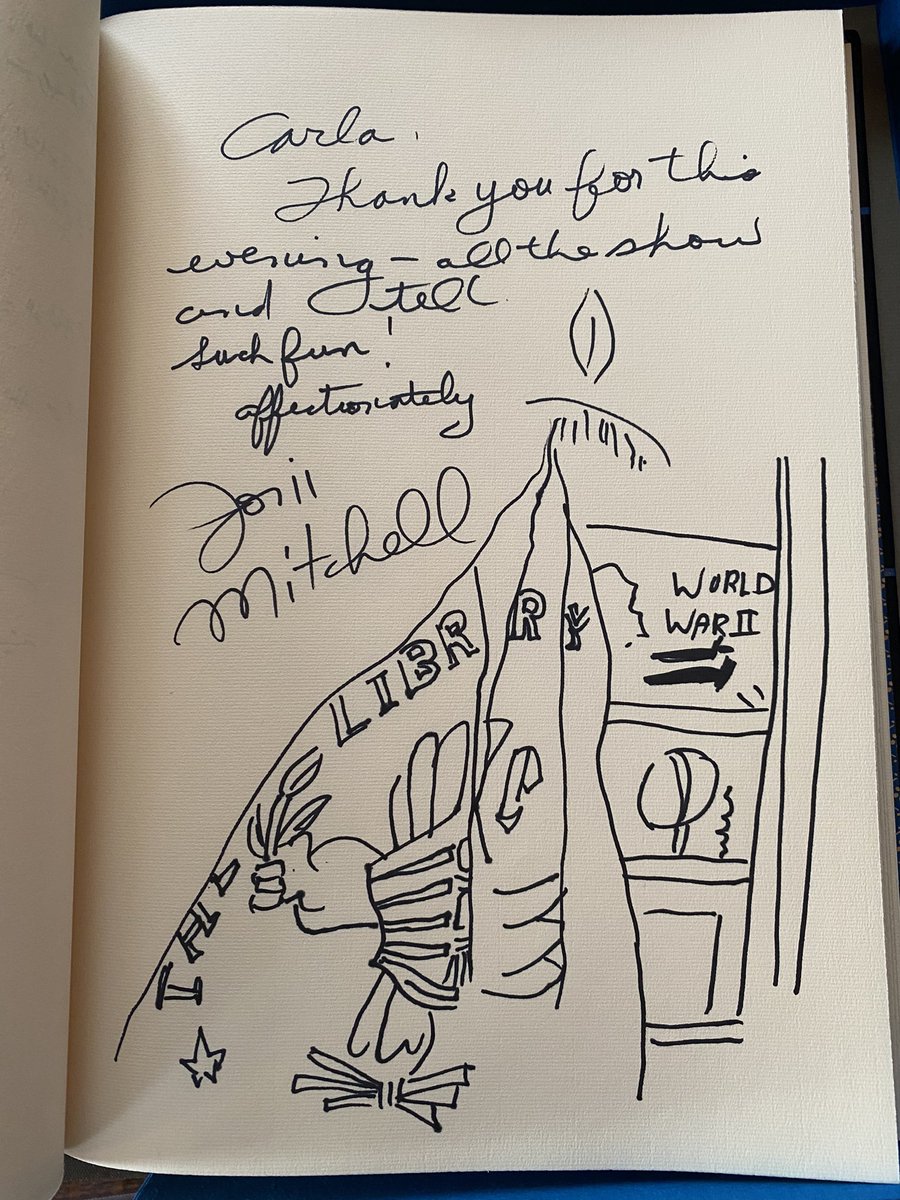 Carla.
Thank you for this
evening – all the show
and tell
Such fun!
affectionately
Joni
Mitchell
THE LIBR RY
WORLD
WAR II